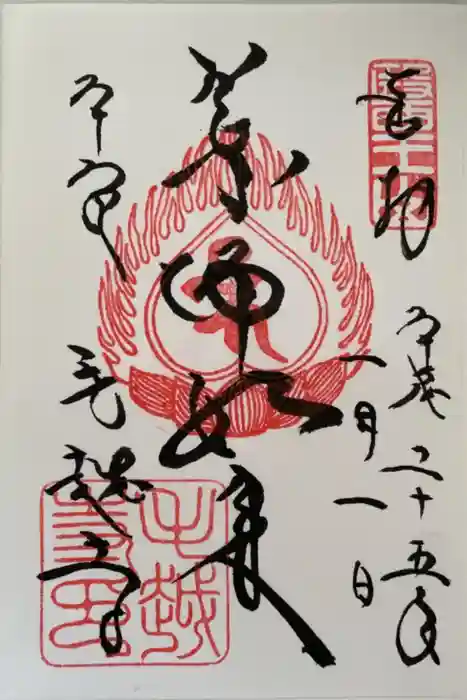 奉拝
平成二十五年
一月一日
薬師如来
平泉
毛越寺
霊場
毛越寺印